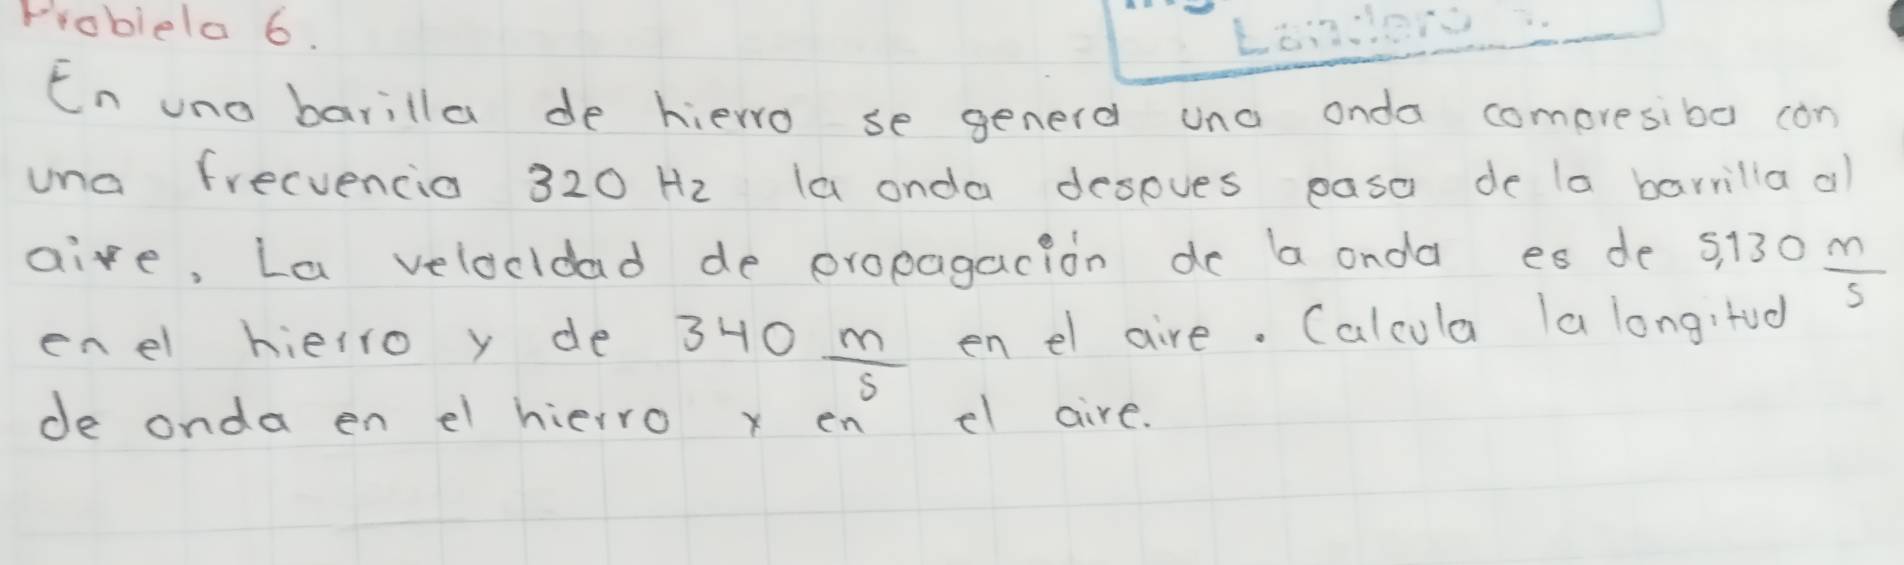 Problela 6.
En una barilla de hierro se genera una onda compresiba con
una frecuencia 320 Hz la onda despues pasa de la barrilla al
aire, La velocidad de propagación de la onda es de 5,130 m/s
en el hierro y de 340 m/s en el aire. Calcula la longitud
de onda en el hierro y en el aire.